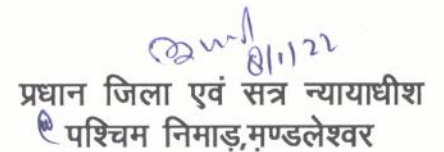 8/1/22
प्रधान जिला एवं सत्र न्यायाधीश
पश्चिम निमाड़,मण्डलेश्वर